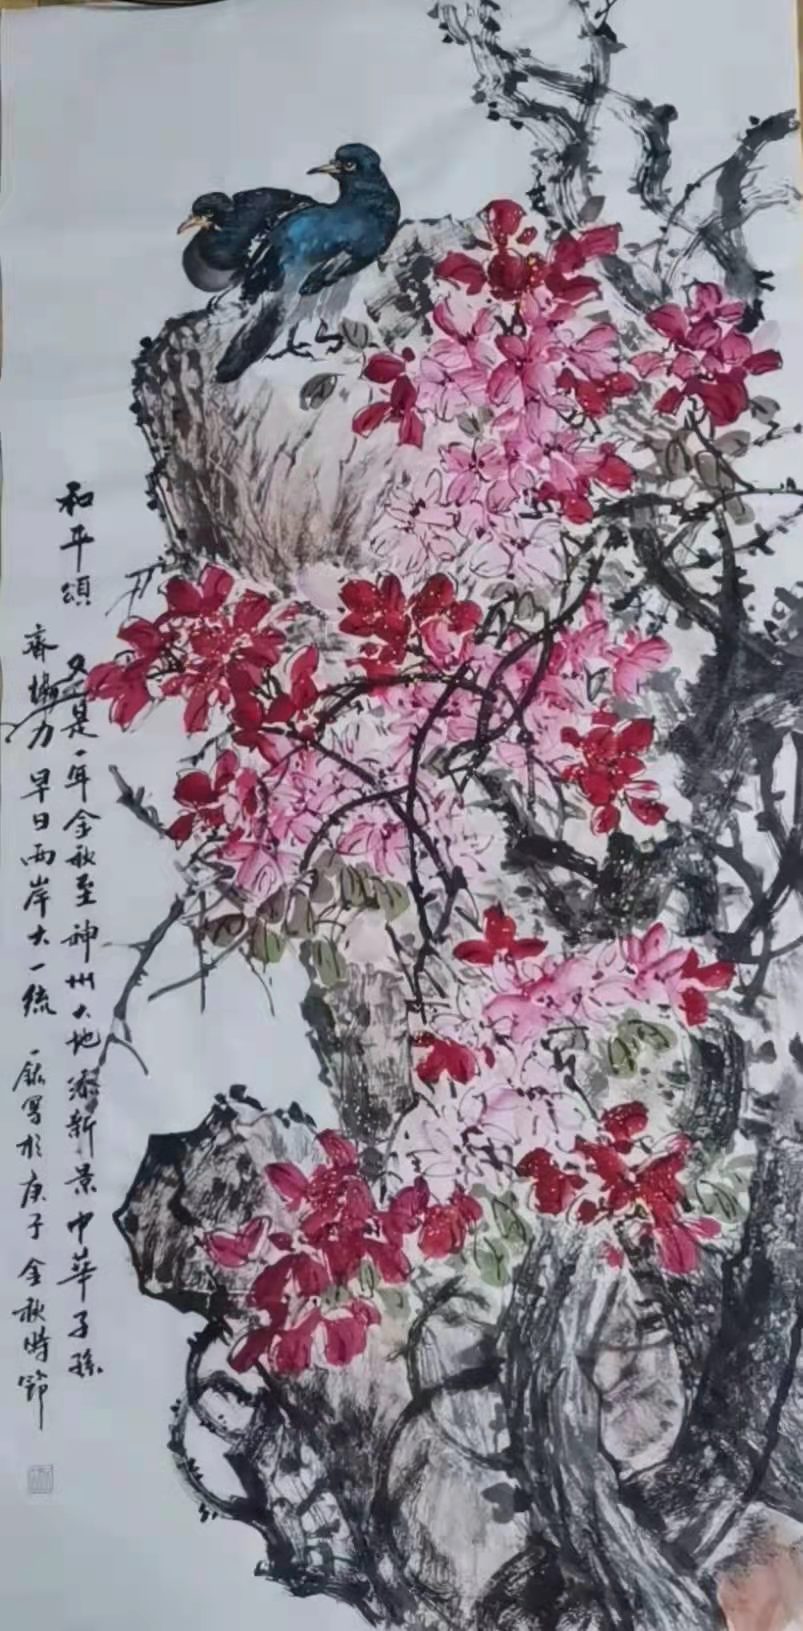 和平頌
又是一年金秋至神州大地添新景中華子孫
齊協力早日兩岸大一統
一鋐寫於庚子金秋時節